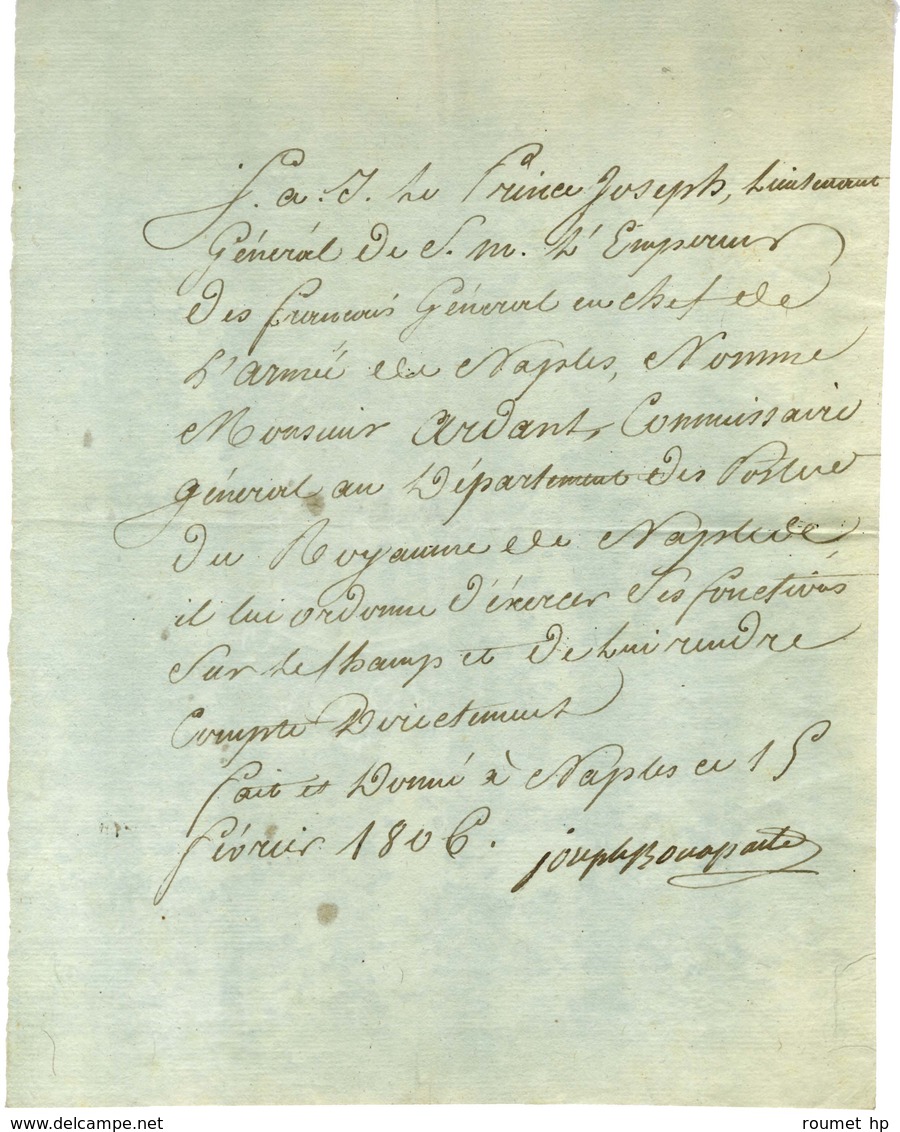 S. a. I. Le Prince Joseph, Lieutenant
Général de S. m. L'Empereur
des français Général en chef de
L'armée de Naples, Nomme
Monsieur Ardant, Commissaire
général au Département des Postes
du Royaume de Naples
il lui ordonne d'éxercer ses fonctions
Sur le champ et de Lui rendre
Compte Directement
fait et Donné à Naples ce 15
février 1806.
Joseph Bonaparte
www.delcampe.net
roumet hp